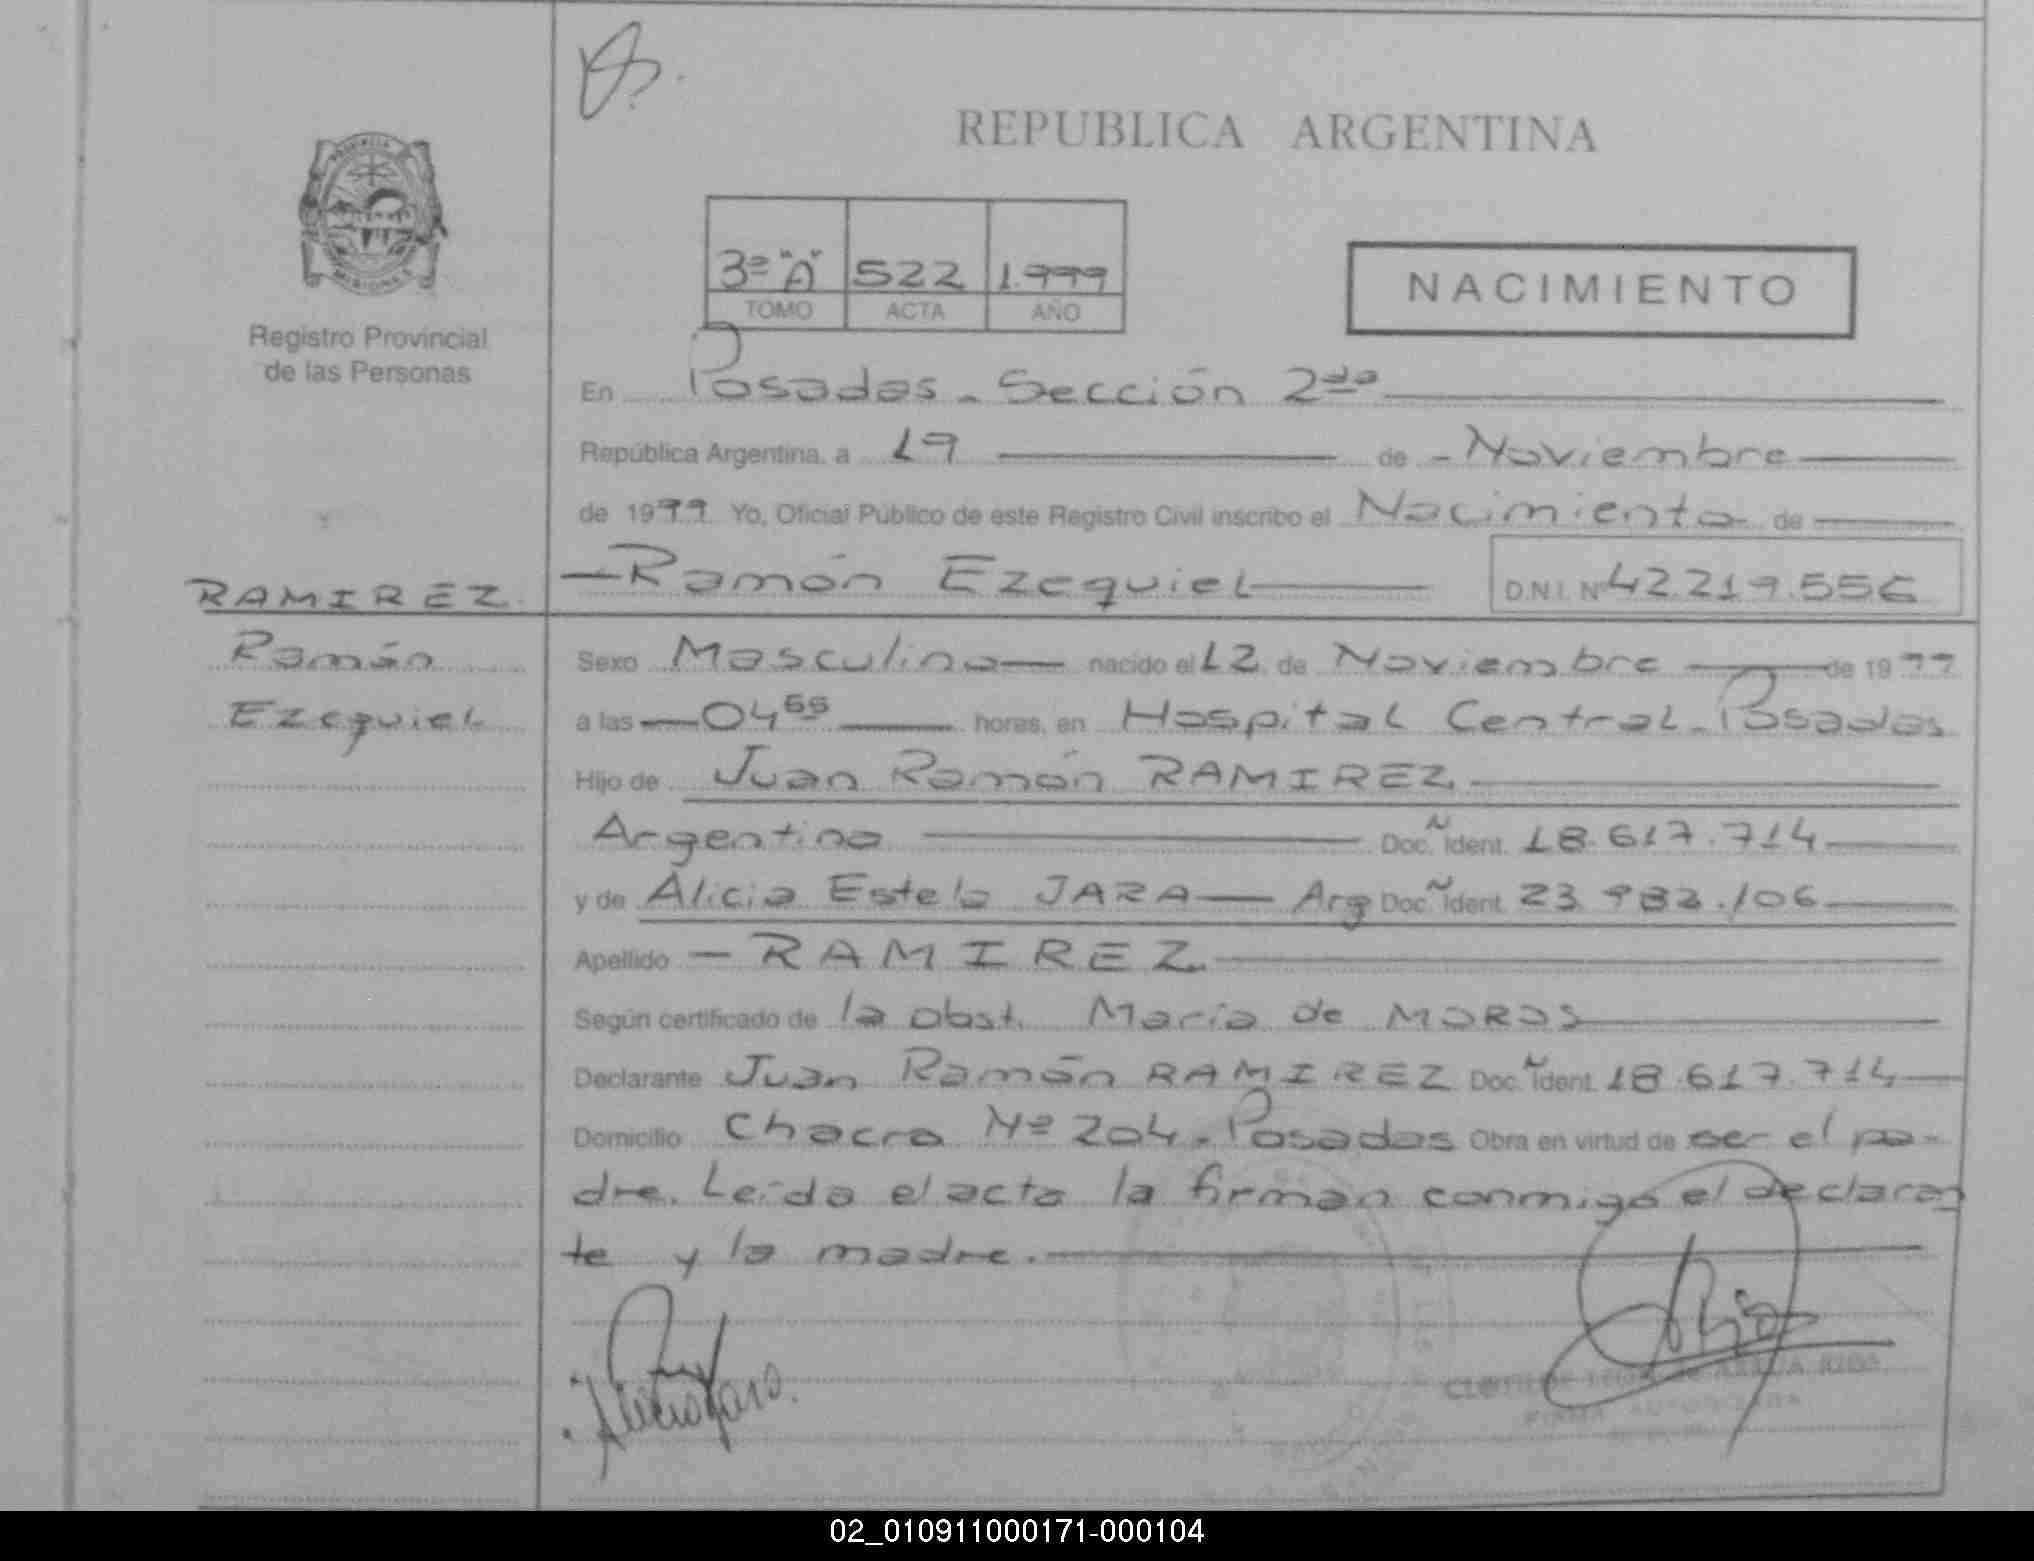 REPUBLICA ARGENTINA
PROVINCIA
MISIONES
Registro Provincial
de las Personas
3º "A" 522 1.999
TOMO ACTA AÑO
NACIMIENTO
En Posadas - Sección 2da
República Argentina, a 19 de - Noviembre
de 1999 Yo, Oficial Público de este Registro Civil inscribo el Nacimiento de
- Ramón Ezequiel
D.N.I. Nº 42.219.556
RAMIREZ
Ramón
Ezequiel
Sexo Masculino nacido el 12 de Noviembre de 1999
a las 04 55 horas, en Hospital Central - Posadas
Hijo de Juan Ramón RAMIREZ
Argentino Doc. Ident. 18.617.714
y de Alicia Estela JARA - Arg Doc. Ident. 23.982.106
Apellido - RAMIREZ
Según certificado de la obst. María de MOROS
Declarante Juan Ramón RAMIREZ Doc. Ident. 18.617.714
Domicilio Chacra Nº 204 - Posadas Obra en virtud de ser el pa-
dre. Leída el acta la firman conmigo el declaran
te y la madre.
FIRMA AUTORIZADA
02_010911000171-000104